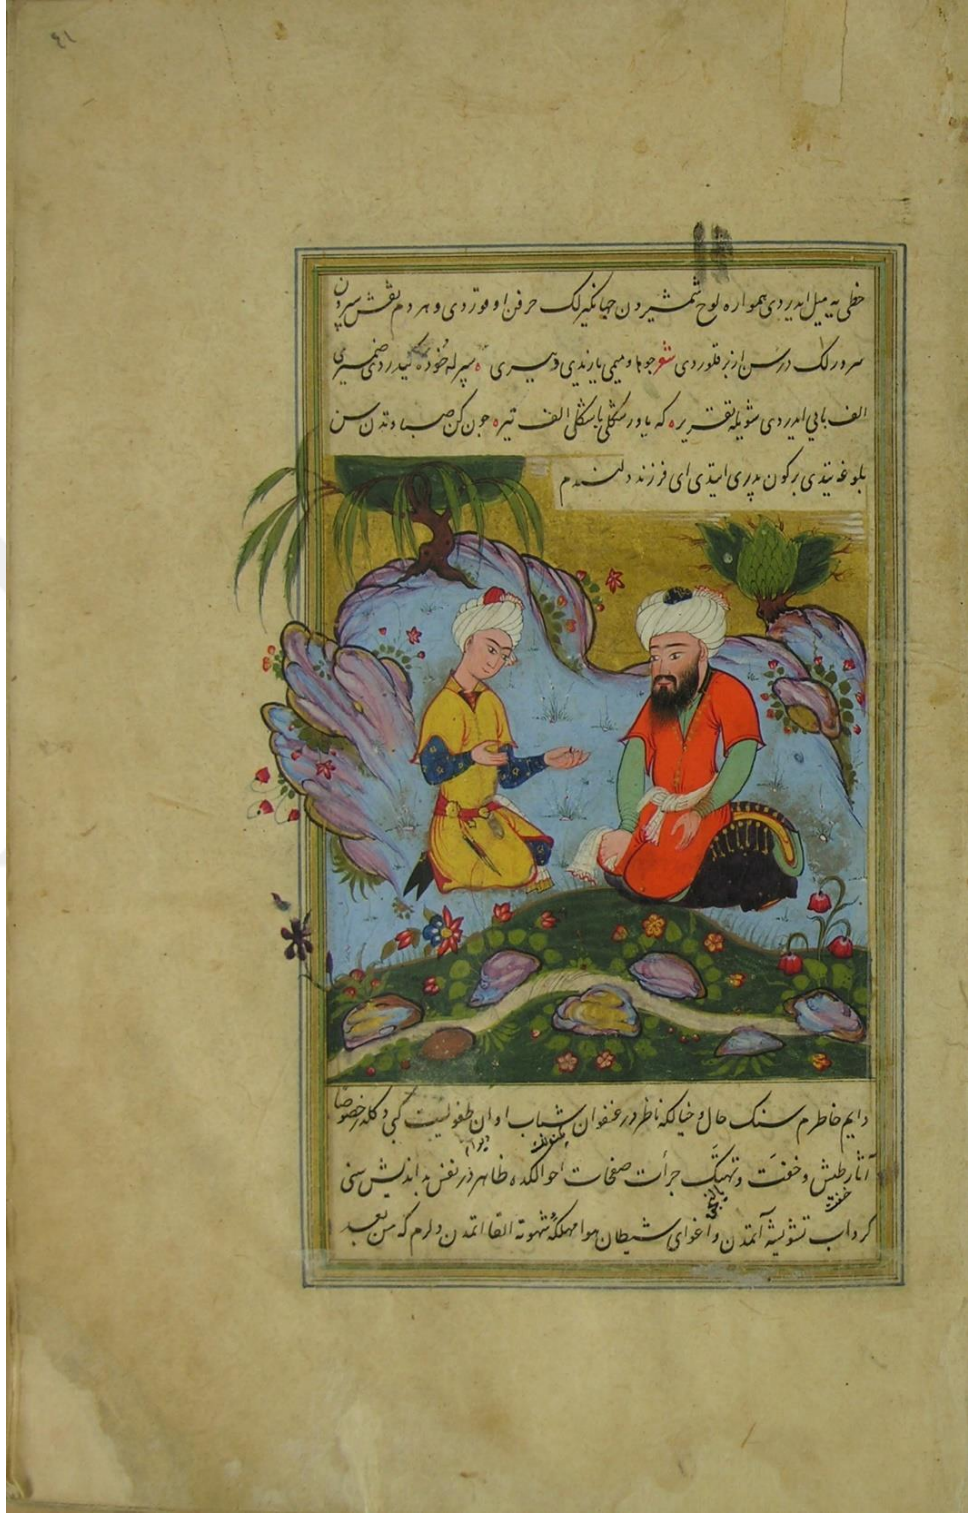 ٤١
خطی یه میل ایدردی همواره لوح شمشیردن جهانکیرلک حرفن اوقوردی و هر دم نقش سپردن
سرورلک درسن ازبر قلوردی شعر جوها و میمی یازیدی دبیری سپرله خود کیدردی ضمیری
الف بایی ایدردی شویله تقریره که یا ور شکلی با شکلی الف تیره چون کن صباوتدن سن
بلوغه یتدی برکون پدری ایتدی ای فرزند دلبندم
دایم خاطرم سنک حال و خیالکه ناظردر عنفوان شباب اوان طفولیت کبی دکلدر خصوصا
آثار طیش و خفت و تهتک جرأت صفحات احوالکده ظاهردر نفس بد اندیش سنی
خفت
کرداب تشویشه آتمدن و اغوای شیطان هوا مهلکهٔ شهوته القا اتمدن دلرم که من بعد